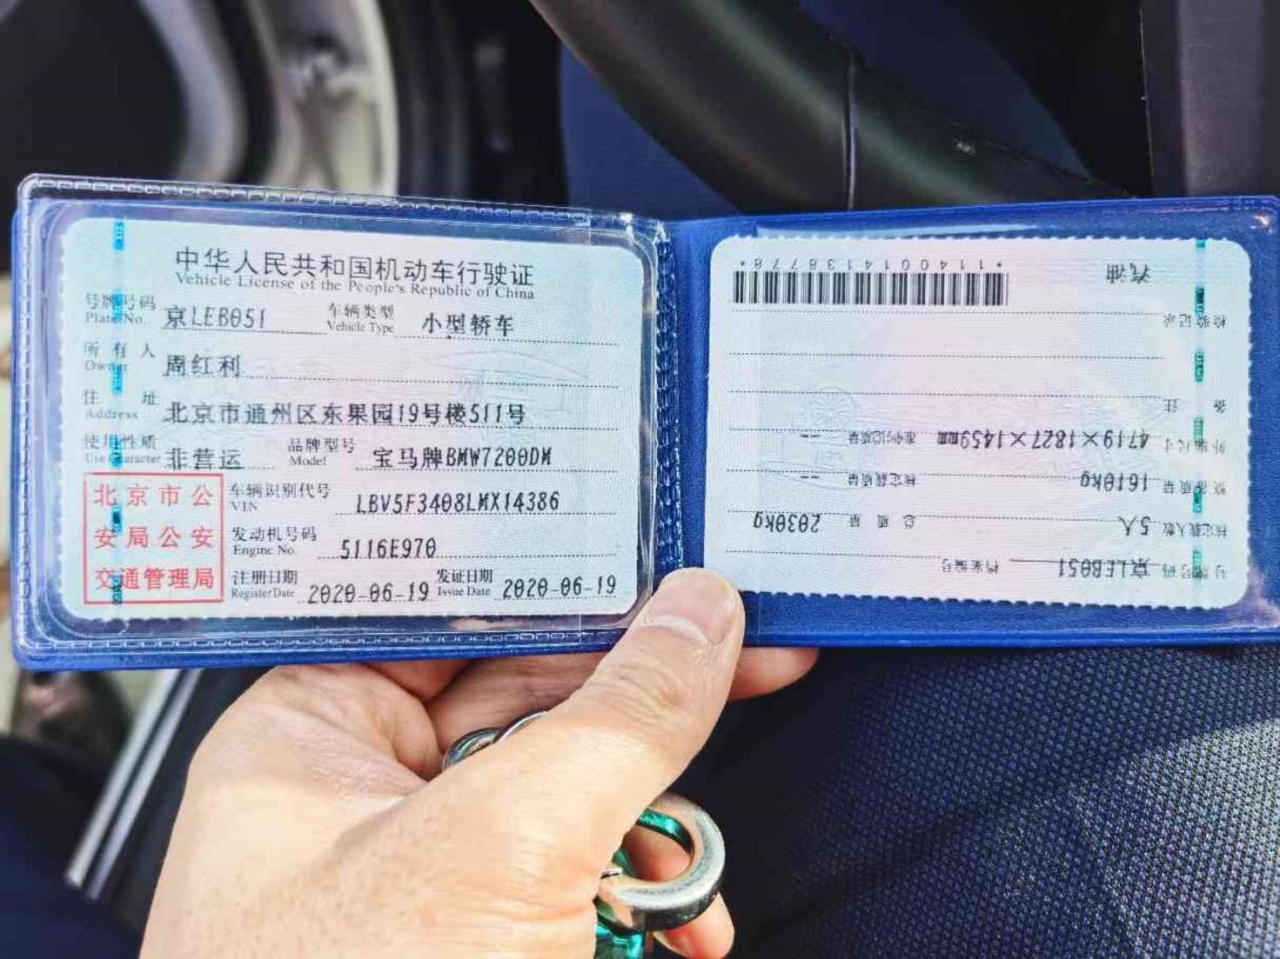 中华人民共和国机动车行驶证
Vehicle License of the People's Republic of China
号牌号码 Plate No. 京LEB051 车辆类型 Vehicle Type 小型轿车
所有人 Owner 周红利
住址 Address 北京市通州区东果园19号楼511号
使用性质 Use Character 非营运 品牌型号 Model 宝马牌BMW7200DM
北京市公安局公安交通管理局
车辆识别代号 VIN LBV5F3408LMX14386
发动机号码 Engine No. 5116E970
注册日期 Register Date 2020-06-19 发证日期 Issue Date 2020-06-19
号牌号码 京LEB051 档案编号
核定载人数 5人 总质量 2030kg
整备质量 1610kg 核定载质量 --
外廓尺寸 4719×1827×1459mm 准牵引总质量 --
备注
检验记录
汽油
*1140014138778*